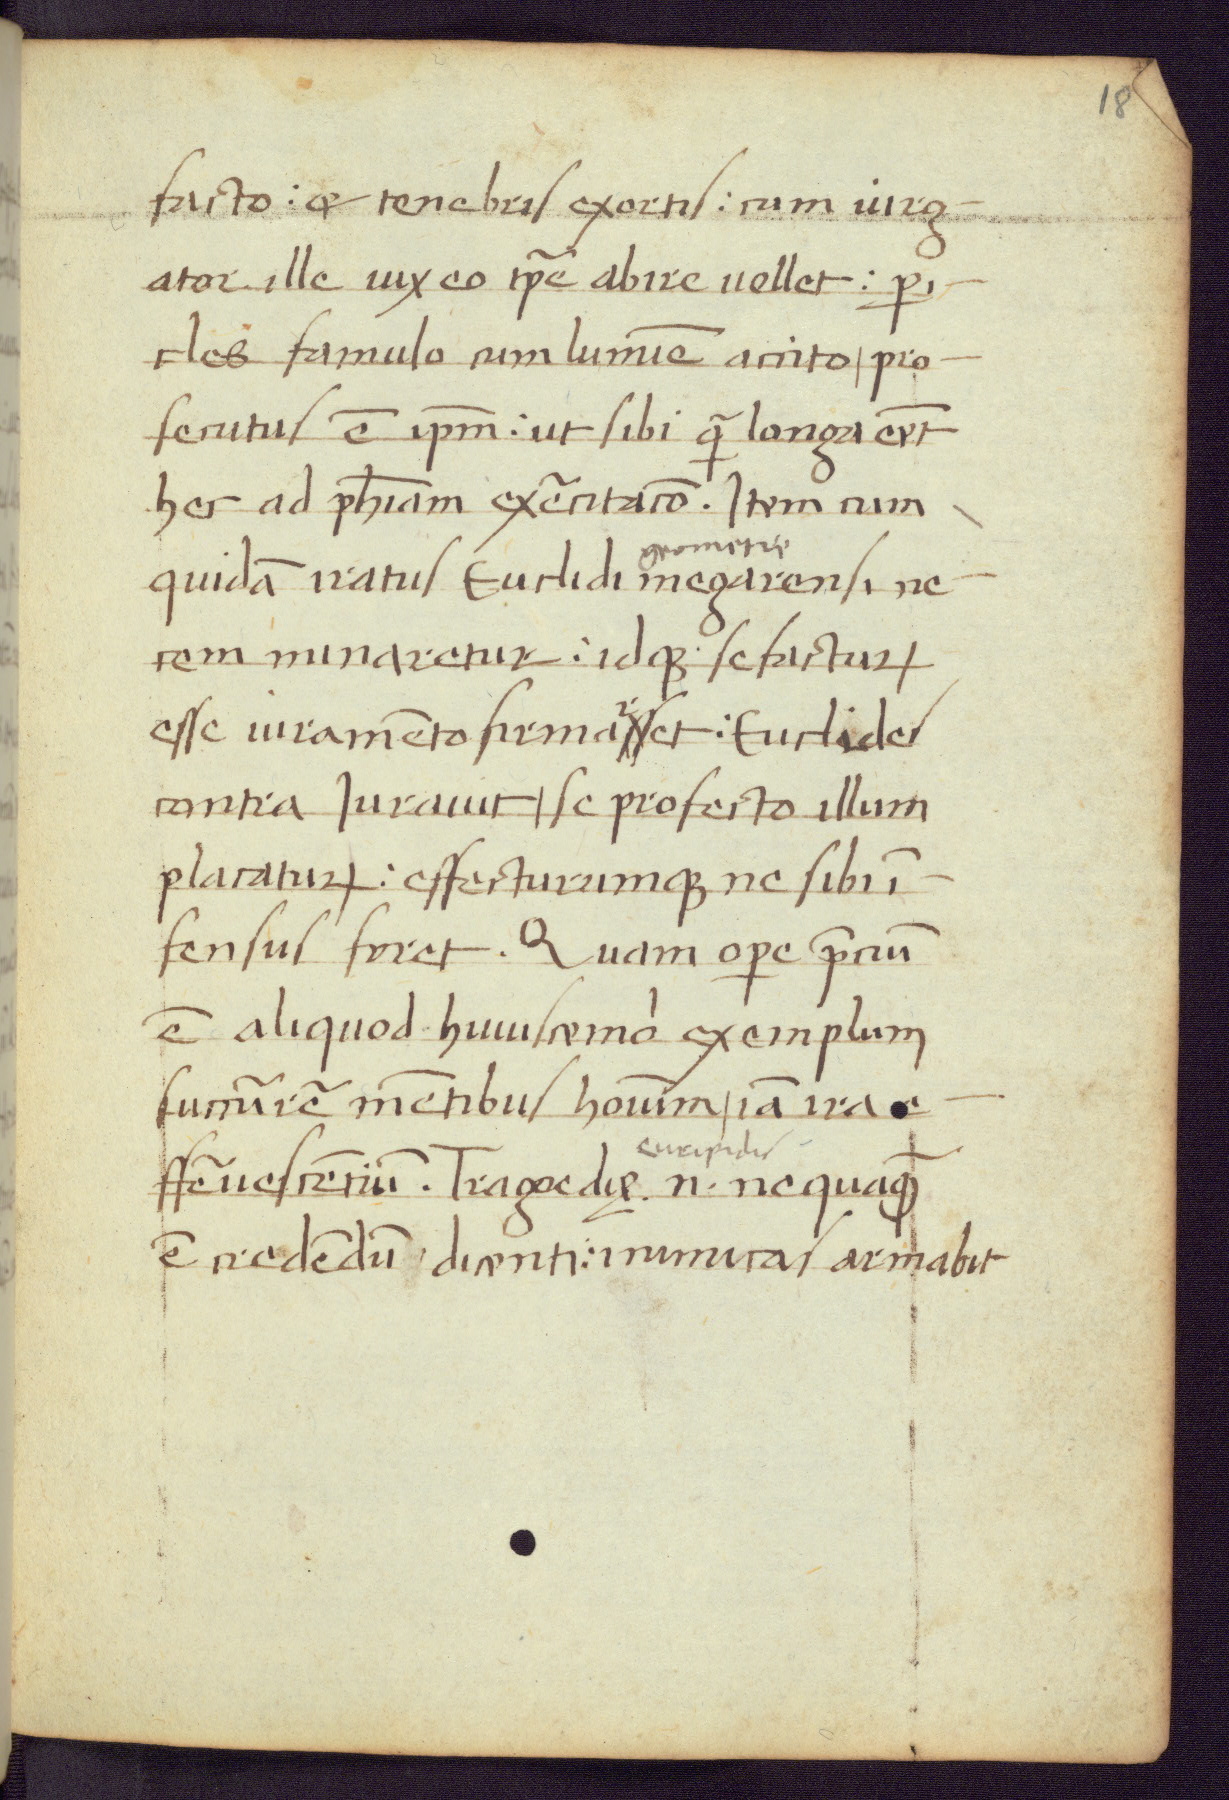 18
facto: & tenebris exortis: cum iurg-
ator ille uix eo tp̃e abire uellet: ꝑi-
cles famulo cum lumīe accito/ pro-
secutus ē ip̄m: ut sibi q̃ longa eēt
hec ad ph̄iam exẽcitacō. Item cum
geometre
quidā iratus Euclidi megarensi ne-
cem minaretur: idqꝫ se facturꝝ
esse iuramēto firmasset: Euclides
contra Iurauit/ se profecto illum
placaturꝝ: effecturumqꝫ ne sibi ī-
fensus foret. Quam oꝑe p̄ciū
ē aliquod huiuscemo᷑ exemplum
succur̃rẽ mētibus hoīum/ iā ira e-
euripidis
ffẽuescētiū. Tragoedię .n. nequaq̄
ē credēdū dicenti: inimicas armabit